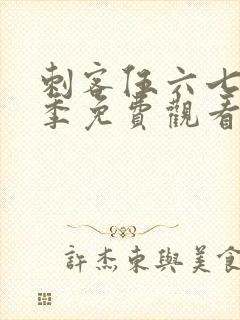 刺客伍六七
季免費觀看
許杰東與美食